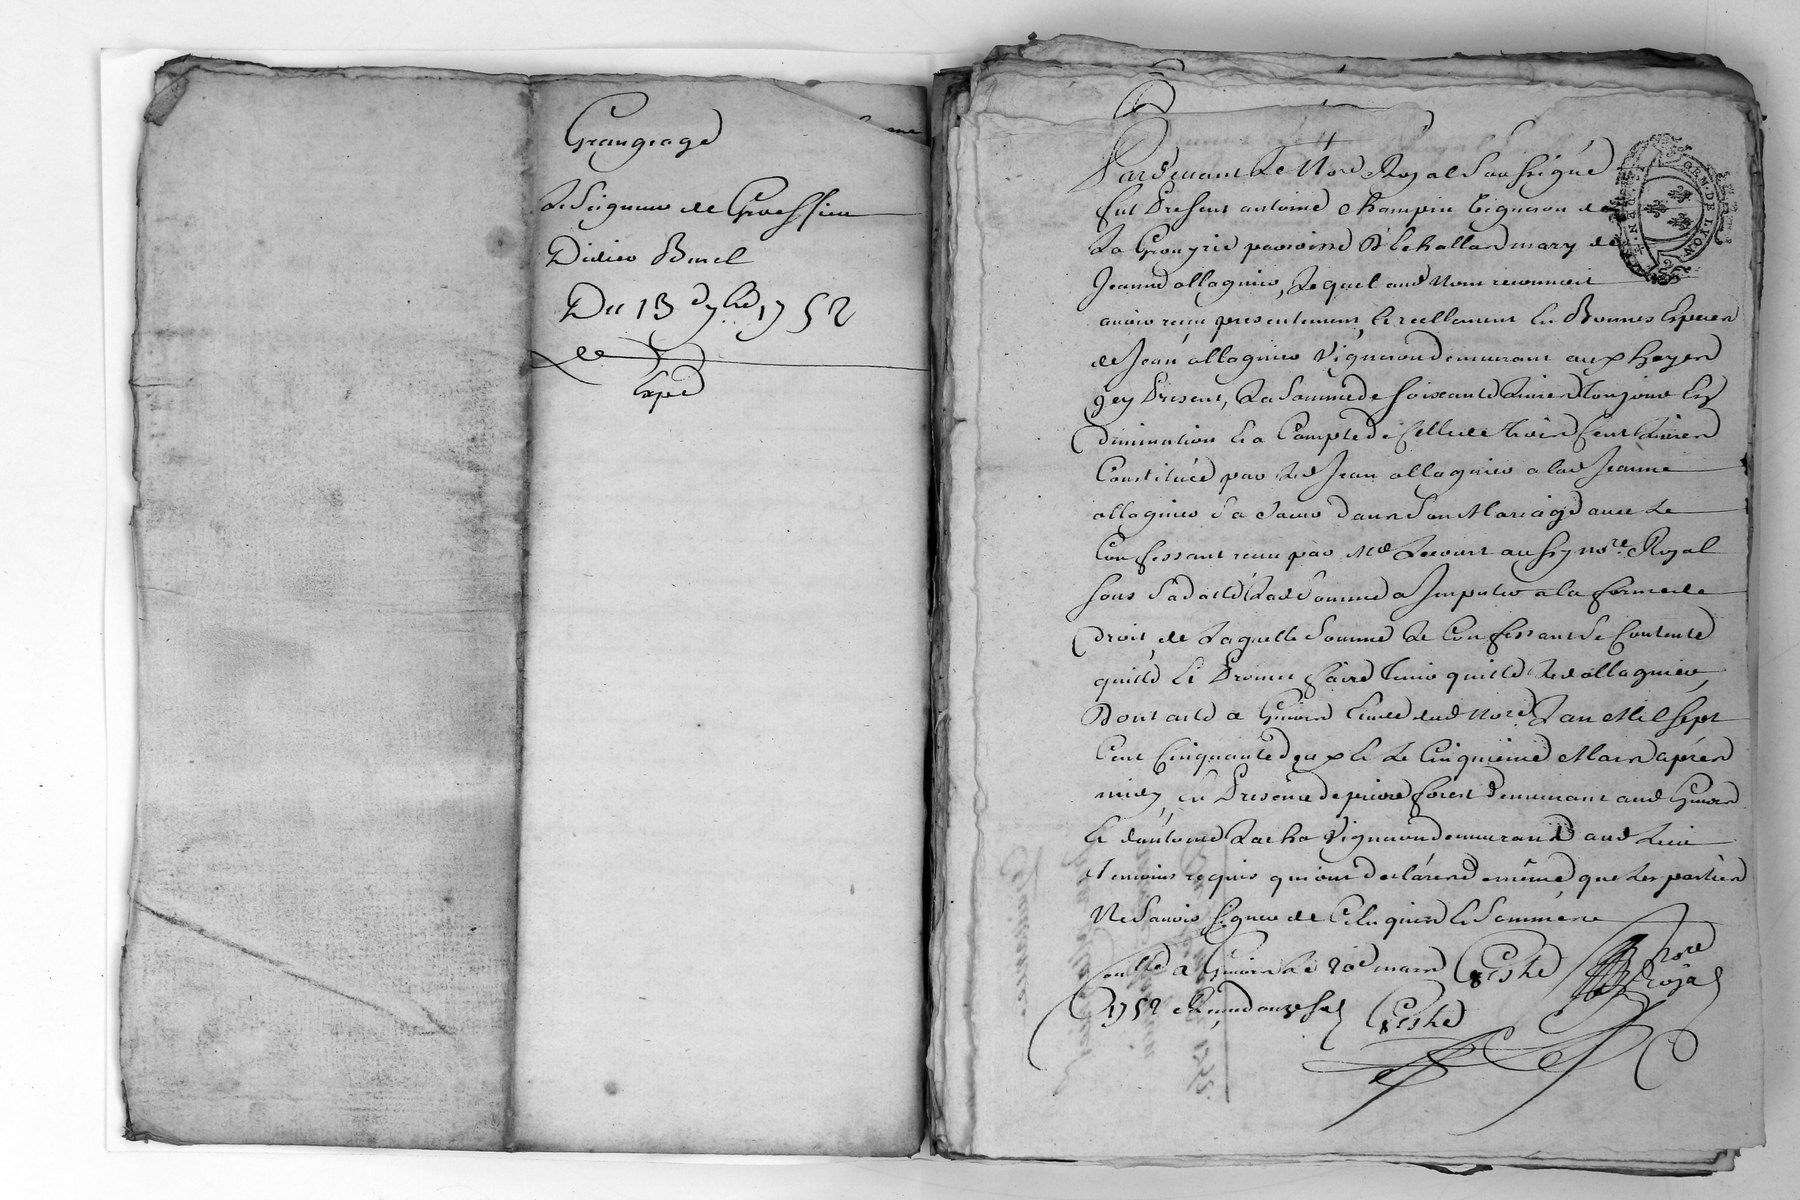 Grangeage
Le Seigneur de Groessieu
Didier Burel
Du 13e 7bre 1752
Expd
GEN. DE LYON
Pardevant Le Nore Royal Soussigné
fut Present antoine Champin Vigneron de
La paroisse St Lehallard mary de
Jeanne allagnier, Lequel aud Nom reconnoit
avoir reçu presentement, Et reellement En Bonnes Especes
de Jean allagnier Vigneron demeurant aux hayes
Icy Present, La Somme de soixante Livres Toujours En
diminution Et a Compte de Celle de trois Cent Livres
Constituée par Led Jean allagnier a lad Jeanne
allagnier Sa Sœur dans Son Mariage avec Le
Confessant reçu par Me aussy nore Royal
sous Sa datte Lad Somme a Imputer a la forme de
droit, de Laquelle Somme Le Confessant Se Contente
quitte Et Promet faire tenir quitte Led allagnier,
Dont acte a Givors Etude dud Nore L'an Mil Sept
Cent Cinquante deux Et Le Cinquieme Mars apres
midy, En Presence de pierre forest demeurant aud Givors
Et d'antoine Vigneron demeurand aud Lieu
temoins requis qui ont declarés de même que Les parties
Ne Savoir Signer de Ce Enquis Et Sommés
Conllé a Givors Le 20e mars nore
1752 Royal